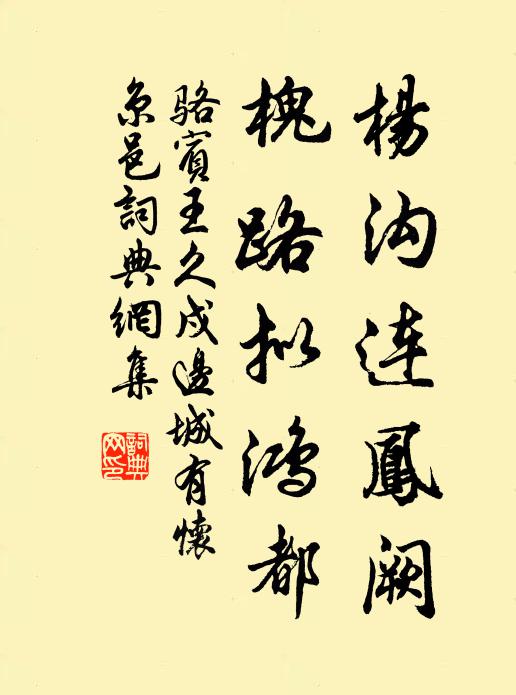 楊沟連鳳阙
槐路拟鴻都
駱賓王久戍邊城有懷
京邑詞典網集
詞典网印